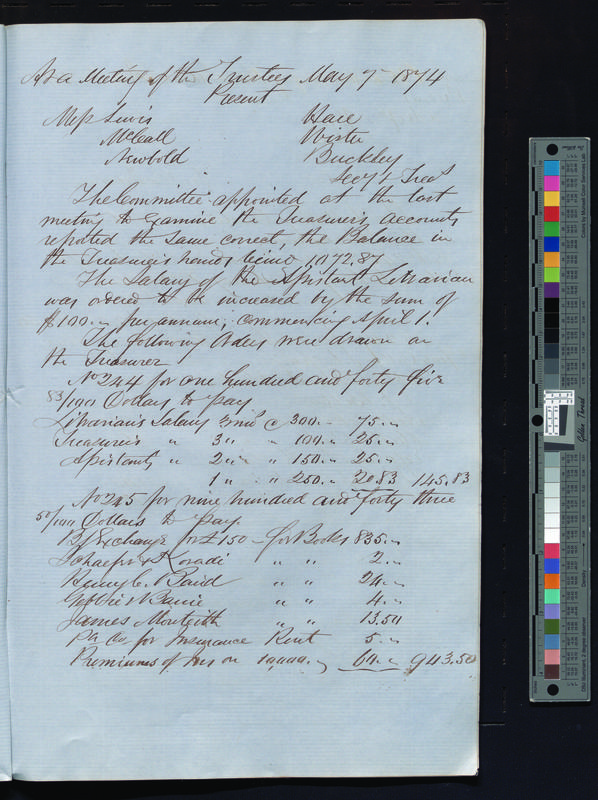 At a Meeting of the Trustees May 7 1874
Present
Mess Lewis Hare
McCall Wister
Newbold Buckley
Secy & Treas
The Committee appointed at the last
meeting to examine the Treasurers accounts
reported the same correct, the Balance in
the Treasurers hands being 1,072.87
The Salary of the Assistant Librarian
was ordered to be increased by the sum of
$100.„ per annum; commencing April 1.
The following Orders were drawn on
the Treasurer
No 244 for one hundred and forty five
83/100 Dollars to pay
Librarians Salary 3 mos @ 300.„ 75.„
Treasurers „ 3 „ „ 100.„ 25.„
Assistants „ 2 „ „ 150.„ 25.„
1 „ „ 250.„ 20.83 145.83
No 245 for nine hundred and forty three
50/100 Dollars to pay
B/ Exchange for £150 – for Books 835.„
Schaefer & Koradi „ „ 2.„
Henry C. Baird „ „ 24.„
Gebbie & Barrie „ „ 4.„
James Monteith „ „ 13.50
Pa Co. for Insurance Rent 5.„
Premiums of Ins on 10,000.„ 60.„ 943.50
Golden Thread